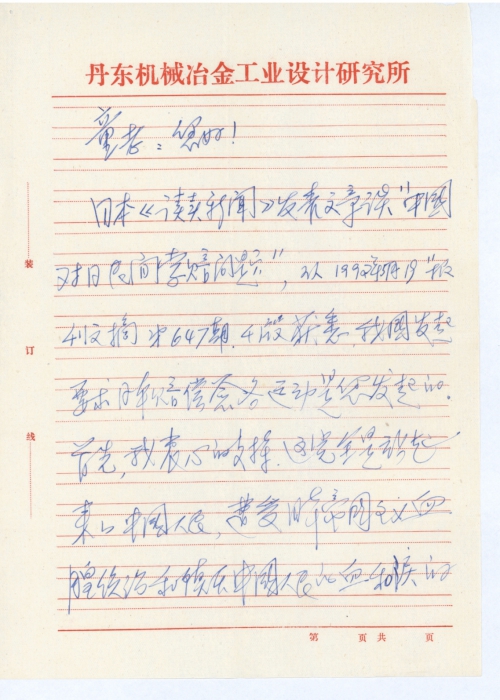 丹东机械冶金工业设计研究所
童老：您好！
日本《读卖新闻》发表文章谈“中国
对日民间索赔问题”，从1992年5月19“报
刊文摘”第647期，4版获悉，我国发起
要求日本赔偿签名运动是您发起的.
首先，我衷心的支持.这完全是站起
来的中国人民，遭受日本帝国主义血
腥统治和镇压中国人民的血和泪的
装
订
线
第 页 共 页